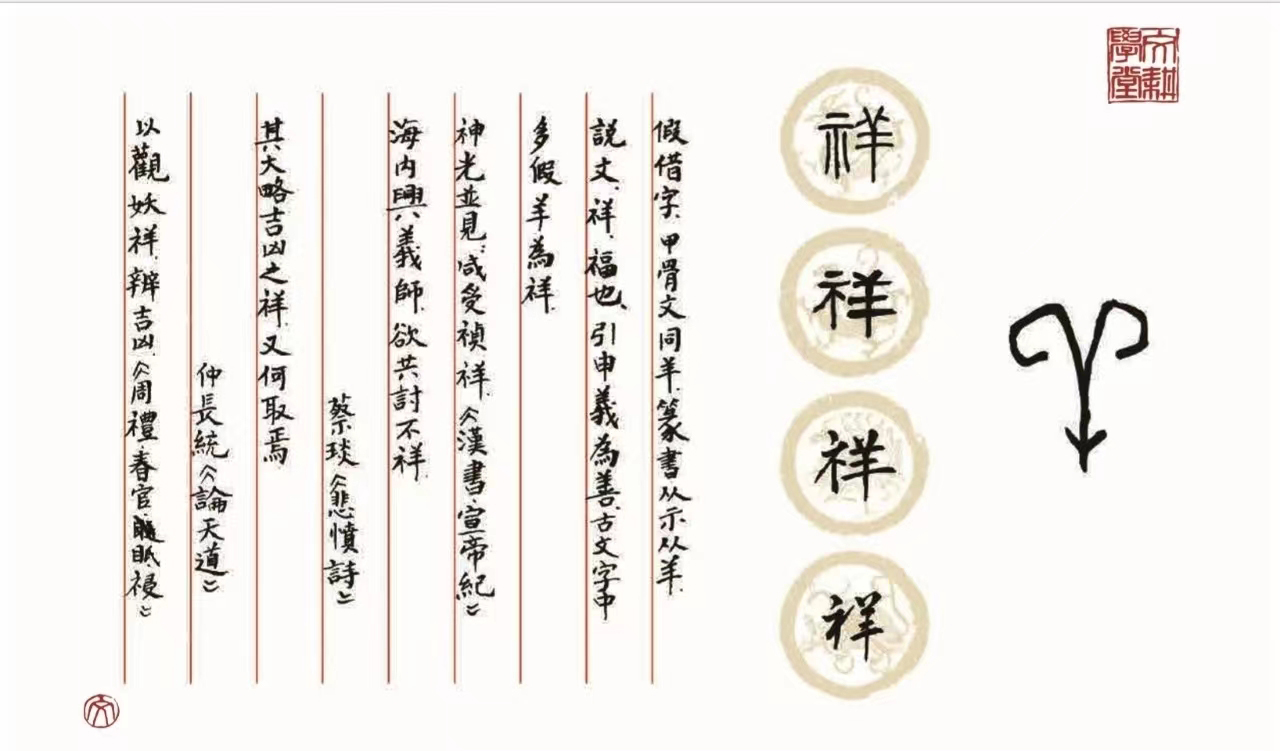 文耕
學堂
祥
祥
祥
祥
假借字、甲骨文同羊、篆書从示从羊、
説文、祥、福也、引申義為善、古文字中
多假羊為祥、
神光並見、咸受禎祥、《漢書·宣帝紀》
海内興義師、欲共討不祥、
蔡琰《悲憤詩》
其大略吉凶之祥、又何取焉
仲長統《論天道》
以觀妖祥、辨吉凶、《周禮·春官·眡祲》
文